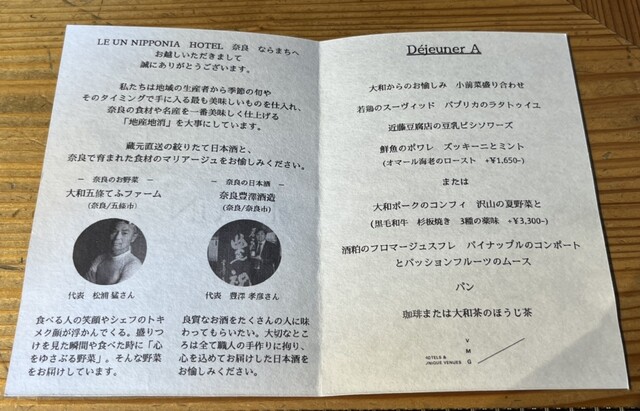 LE UN NIPPONIA HOTEL 奈良 ならまちへ
お越しいただきまして
誠にありがとうございます。
私たちは地域の生産者から季節の旬や
そのタイミングで手に入る最も美味しいものを仕入れ、
奈良の食材や名産を一番美味しく仕上げる
「地産地消」を大事にしています。
蔵元直送の絞りたて日本酒と、
奈良で育まれた食材のマリアージュをお愉しみください。
― 奈良のお野菜 ―
大和五條てふファーム
(奈良/五條市)
代表 松浦 猛さん
食べる人の笑顔やシェフのトキ
メク顔が浮かんでくる。盛りつ
けを見た瞬間や食べた時に「心
をゆさぶる野菜」。そんな野菜
をお届けしています。
― 奈良の日本酒 ―
奈良豊澤酒造
(奈良/奈良市)
代表 豊澤 孝彦さん
良質なお酒をたくさんの人に味
わってもらいたい。大切なとこ
ろは全て職人の手作りに拘り、
心を込めてお届けした日本酒を
お愉しみください。
Déjeuner A
大和からのお愉しみ 小前菜盛り合わせ
若鶏のスーヴィッド パプリカのラタトゥイユ
近藤豆腐店の豆乳ビシソワーズ
鮮魚のポワレ ズッキーニとミント
(オマール海老のロースト +¥1,650~)
または
大和ポークのコンフィ 沢山の夏野菜と
(黒毛和牛 杉板焼き 3種の薬味 +¥3,300~)
酒粕のフロマージュスフレ パイナップルのコンポート
とパッションフルーツのムース
パン
珈琲または大和茶のほうじ茶
V
M
G
HOTELS &
UNIQUE VENUES